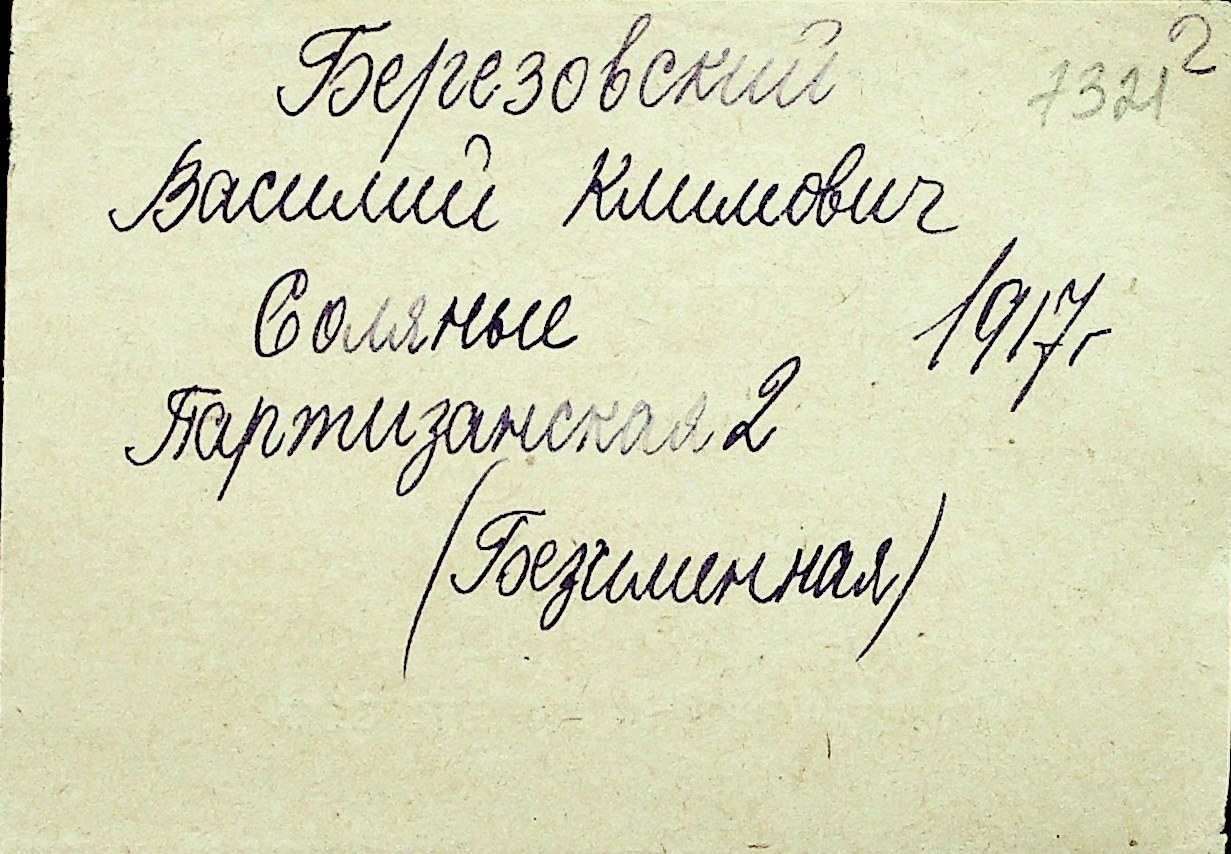 Березовский 7321 2
Василий Климович
Соляные 1917г
Партизанская 2
(Безименная)